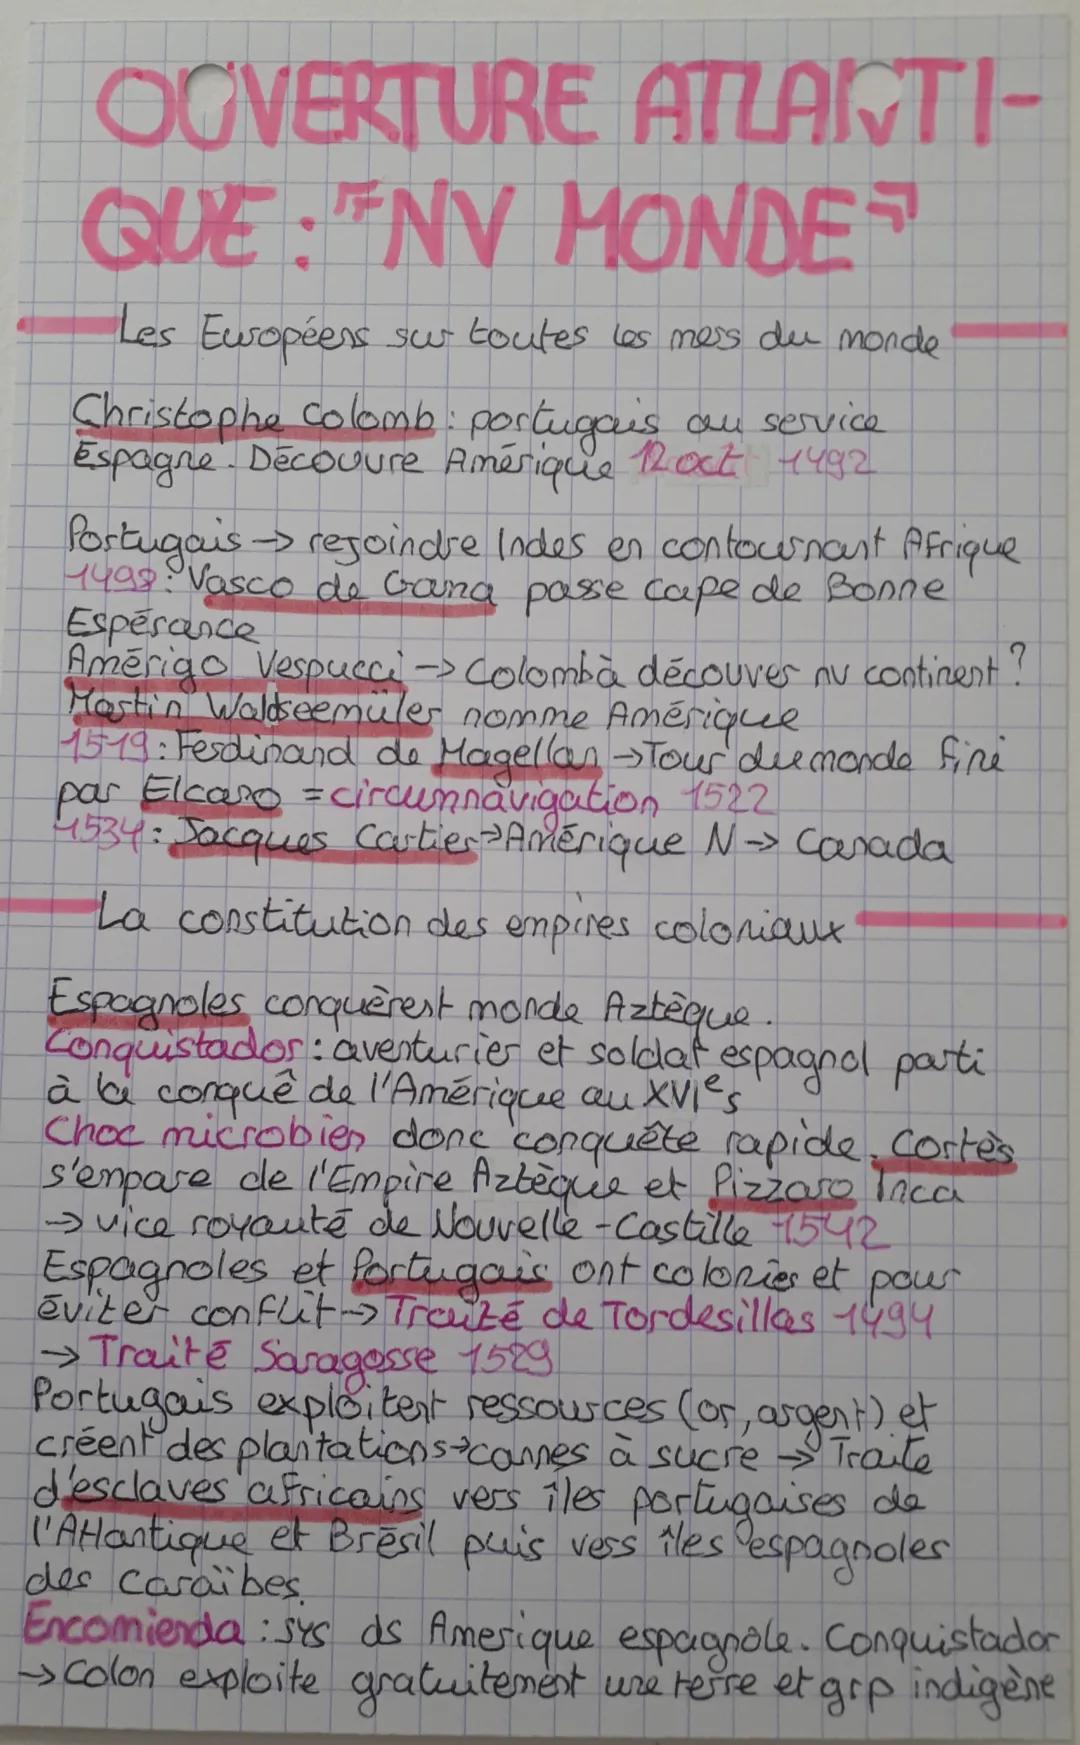 OUVERTURE ATLANTI-
QUE : "NV MONDE"
Les Européens sur toutes les mers du monde
Christophe Colomb : portugais au service
Espagne. Découvre Amérique 12 oct 1492
Portugais → rejoindre Indes en contournant Afrique
1498 : Vasco de Gama passe cape de Bonne
Espérance
Amérigo Vespucci → Colomb à découver nv continent ?
Martin Waldseemüler nomme Amérique
1519 : Ferdinand de Magellan → Tour du monde fini
par Elcano = circumnavigation 1522
1534 : Jacques Cartier → Amérique N → Canada
La constitution des empires coloniaux
Espagnoles conquèrent monde Aztèque.
Conquistador : aventurier et soldat espagnol parti
à la conquê de l'Amérique au XVIe s
Choc microbien donc conquête rapide. Cortès
s'empare de l'Empire Aztèque et Pizzaro Inca
→ vice royauté de Nouvelle-Castille 1542
Espagnoles et Portugais ont colonies et pour
éviter conflit → Traité de Tordesillas 1494
→ Traité Saragosse 1529
Portugais exploitent ressources (or, argent) et
créent des plantations → cannes à sucre → Traite
d'esclaves africains vers îles portugaises de
l'Atlantique et Brésil puis vers îles espagnoles
des Caraïbes.
Encomienda : sys ds Amerique espagnole. Conquistador
→ Colon exploite gratuitement une terre et grp indigène